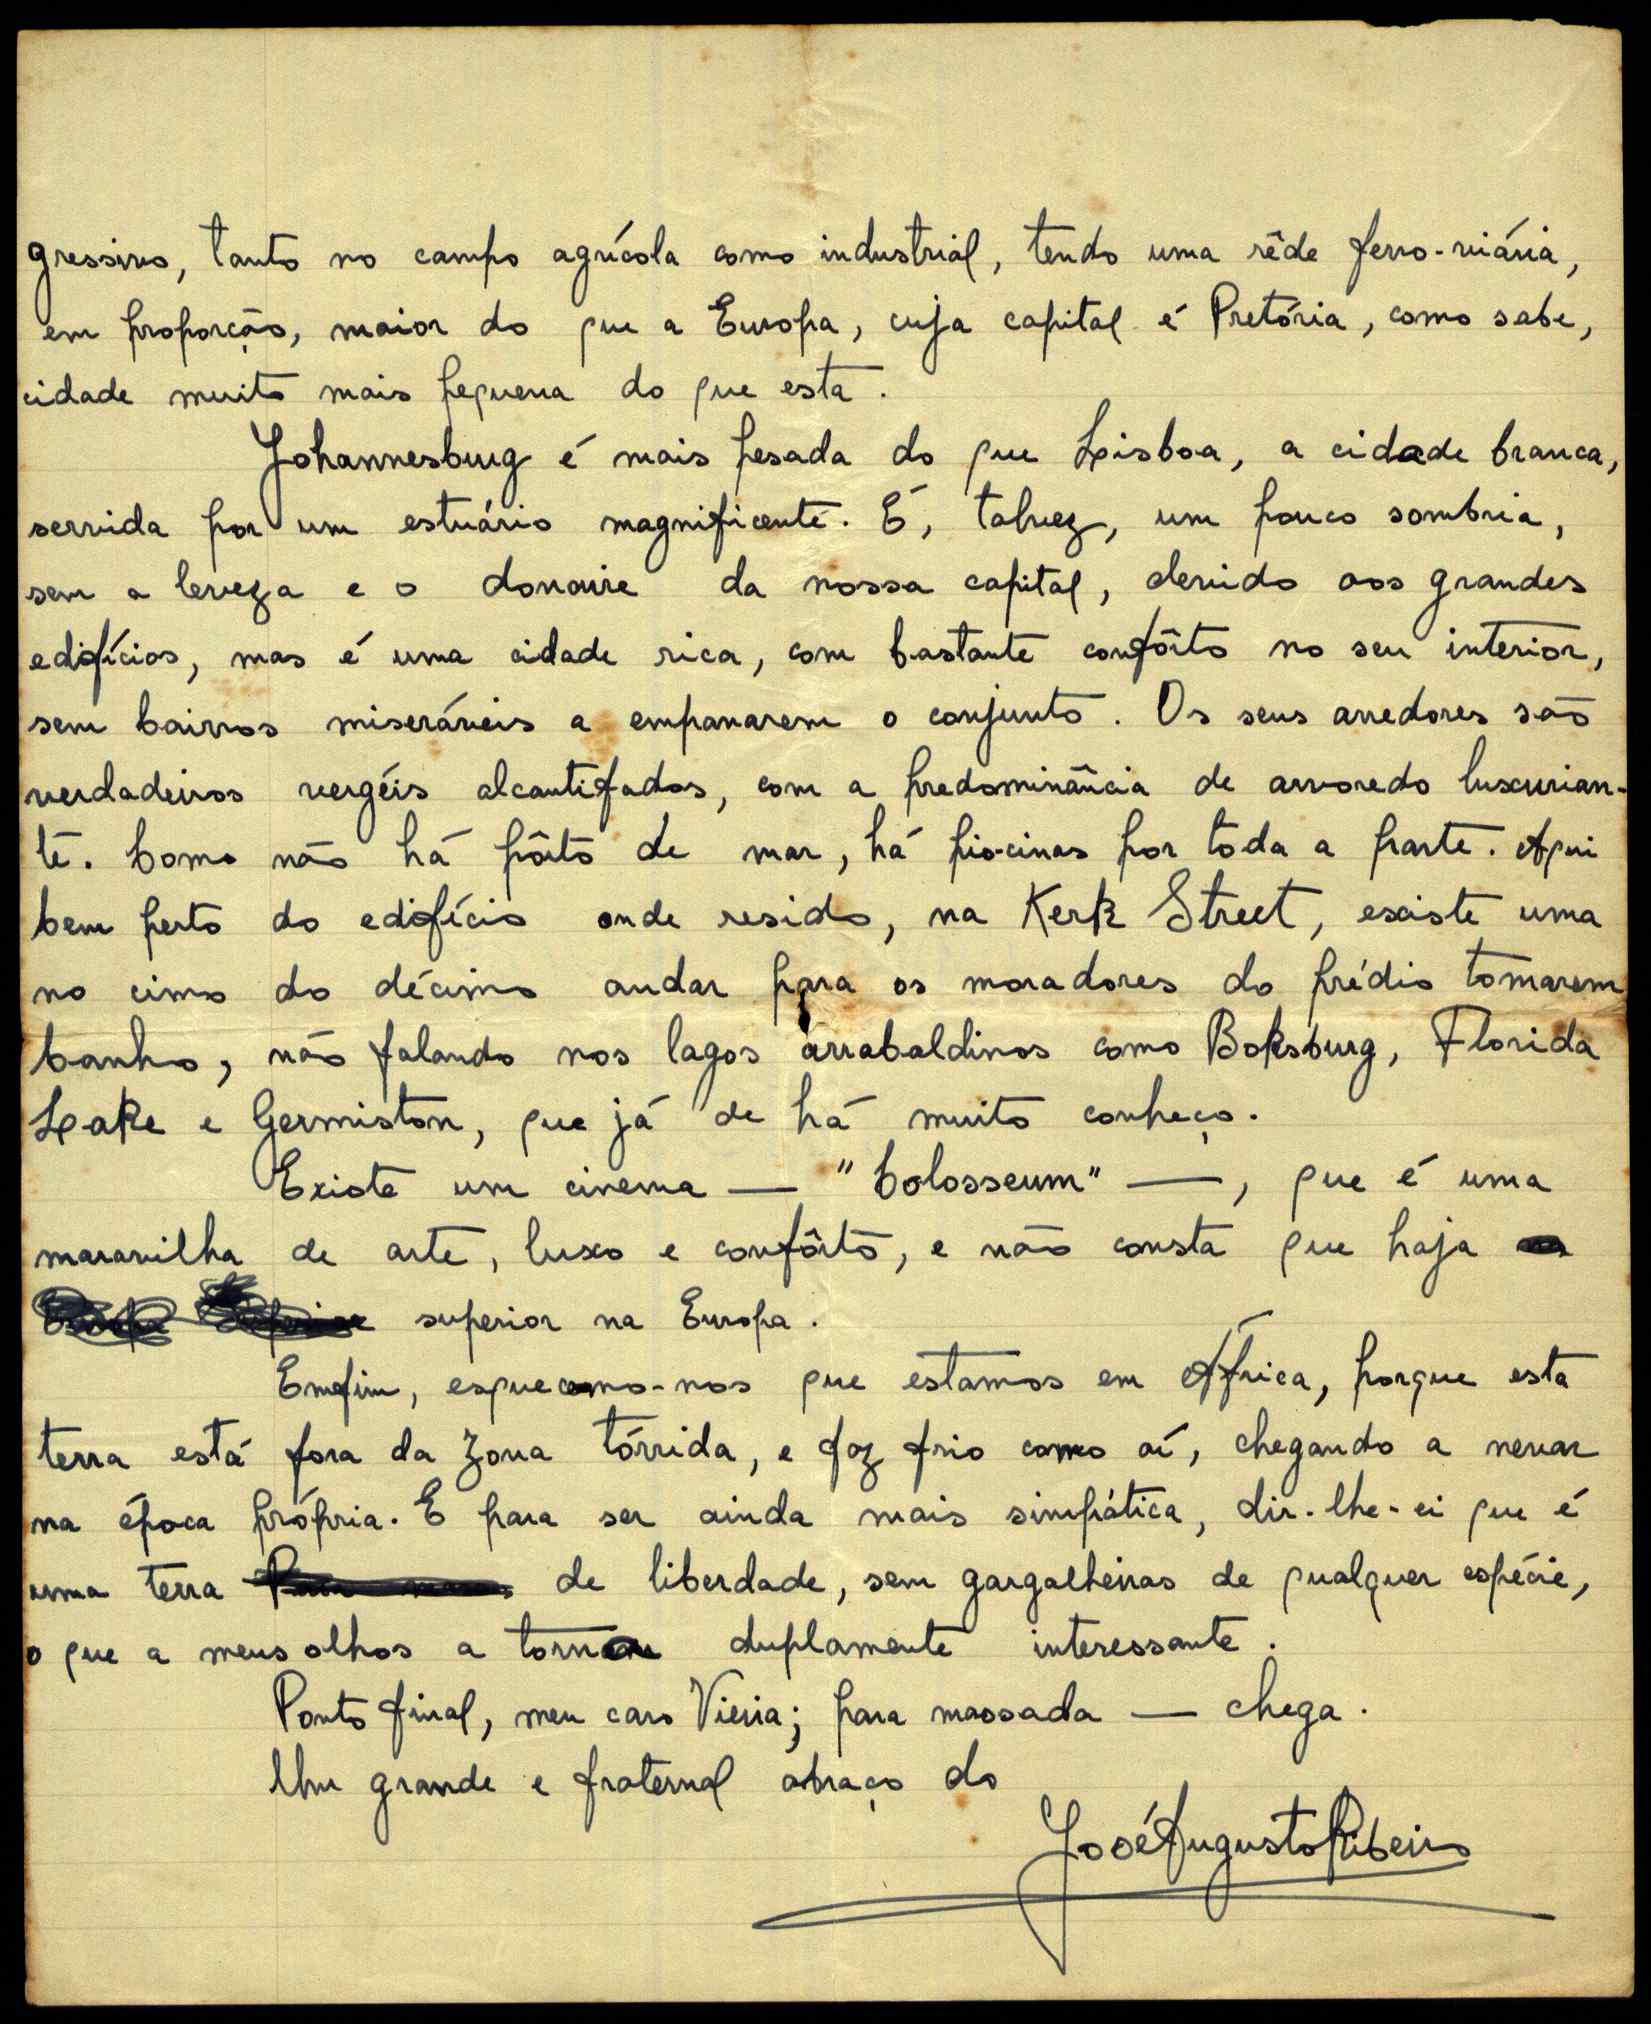 gressivo, tanto no campo agrícola como industrial, tendo uma rêde ferro-viária,
em proporção, maior do que a Europa, cuja capital é Pretória, como sabe,
cidade muito mais pequena do que esta.
Johannesburg é mais pesada do que Lisboa, a cidade branca,
servida por um estuário magnificente. É, talvez, um pouco sombria,
sem a leveza e o donaire da nossa capital, devido aos grandes
edifícios, mas é uma cidade rica, com bastante confôrto no seu interior,
sem bairros miseráveis a empanarem o conjunto. Os seus arredores são
verdadeiros vergéis alcantifados, com a predominância de arvoredo luxurian-
te. Como não há pôrto de mar, há piscinas por toda a parte. Aqui
bem perto do edifício onde resido, na Kerk Street, existe uma
no cimo do décimo andar para os moradores do prédio tomarem
banho, não falando nos lagos arrabaldinos como Boksburg, Florida
Lake e Germiston, que já de há muito conheço.
Existe um cinema — "Colosseum" —, que é uma
maravilha de arte, luxo e confôrto, e não consta que haja
superior na Europa.
Emfim, esquecemo-nos que estamos em África, porque esta
terra está fora da zona tórrida, e faz frio como aí, chegando a nevar
na época própria. E para ser ainda mais simpática, dir-lhe-ei que é
uma terra de liberdade, sem gargalheiras de qualquer espécie,
o que a meus olhos a torna duplamente interessante.
Ponto final, meu caro Vieira; para massada — chega.
Um grande e fraternal abraço do
José Augusto Ribeiro